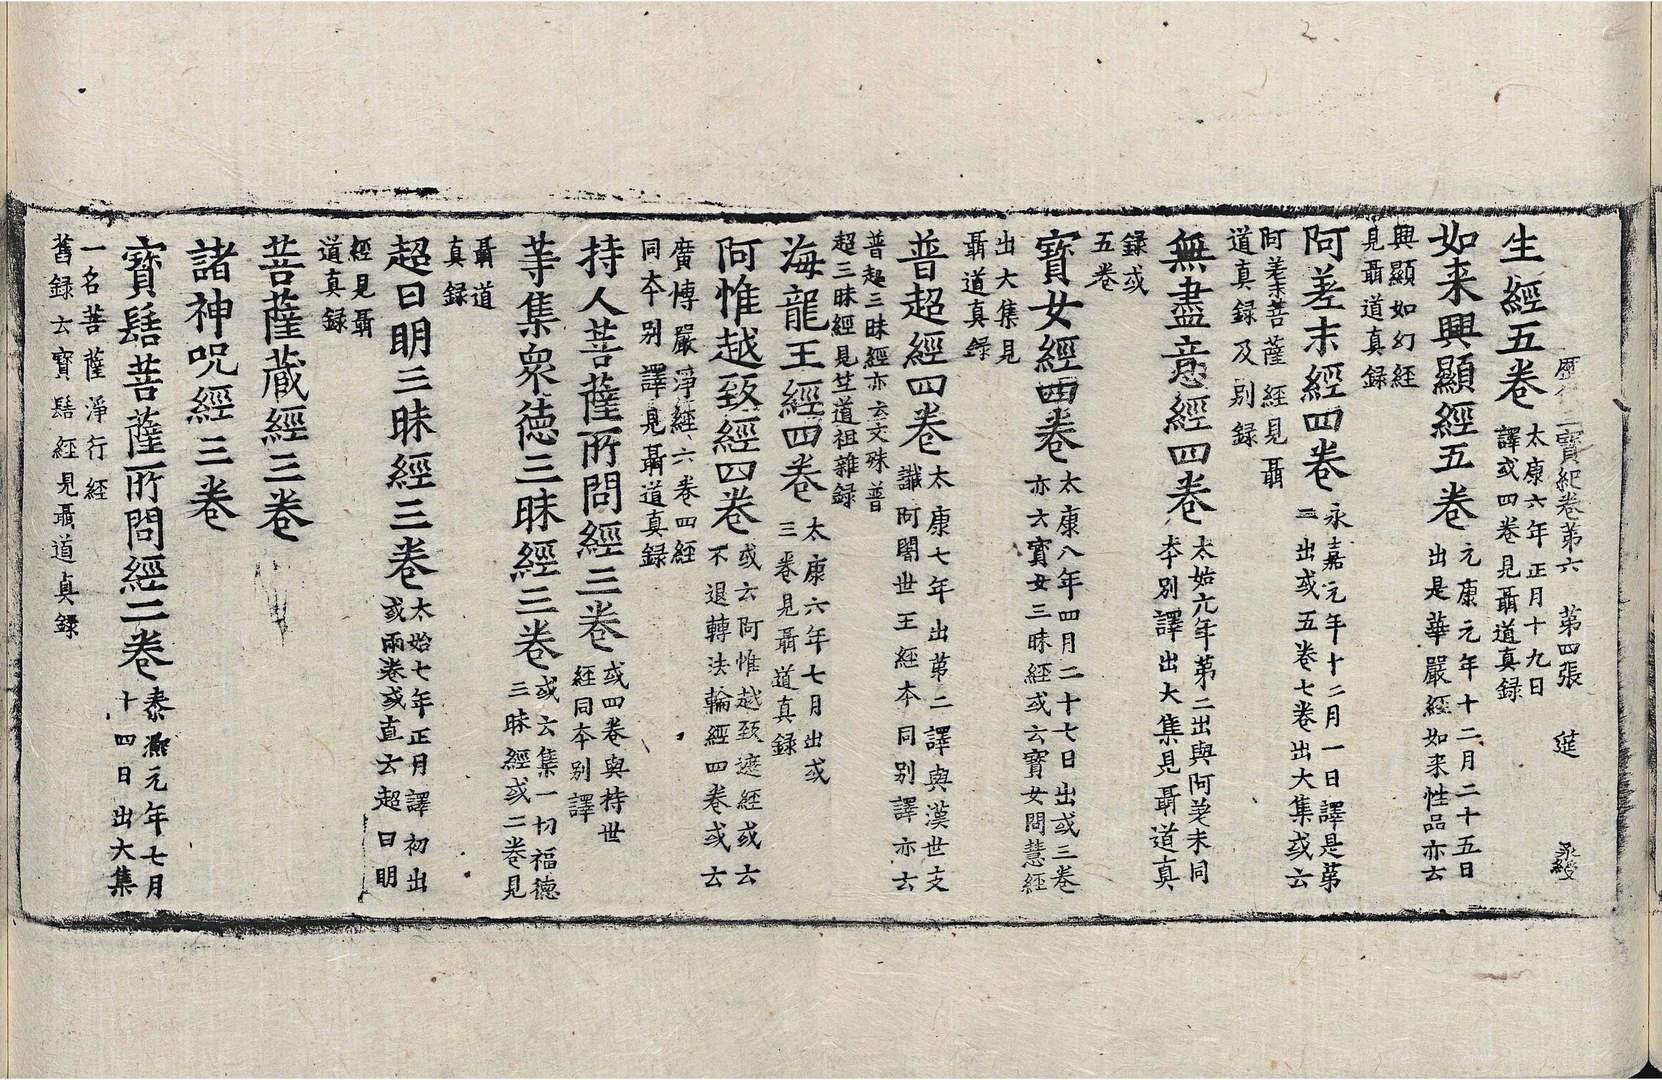 歷代三寶紀卷第六 第四張 莚
生經五卷 太康六年正月十九日
譯或四卷見聶道真録
如来興顯經五卷 元康元年十二月二十五日
出是華嚴經如来性品亦云
興顯如幻經
見聶道真録
阿差末經四卷 永嘉元年十二月一日譯是第
二出或五卷七卷出大集或云
阿差末菩薩經見聶
道真録及别録
無盡意經四卷 太始六年第二出與阿差末同
本别譯出大集見聶道真
録或
五卷
寳女經四卷 太康八年四月二十七日出或三卷
亦云寳女三昧經或云寳女問慧經
出大集見
聶道真録
普超經四卷 太康七年出第二譯與漢世支
讖阿闍世王經本同别譯亦云
普超三昧經亦云文殊普
超三昧經見竺道祖雜録
海龍王經四卷 太康六年七月出或
三卷見聶道真録
阿惟越致經四卷 或云阿惟越致遮經或云
不退轉法輪經四卷或云
廣愽嚴淨經六卷四經
同本别譯見聶道真録
持人菩薩所問經三卷 或四卷與持世
經同本别譯
等集衆德三昧經三卷 或云集一切福德
三昧經或二卷見
聶道
真録
超日明三昧經三卷 太始七年正月譯初出
或兩卷或直云超日明
經見聶
道真録
菩薩蔵經三卷
諸神呪經三卷
寳髻菩薩所問經二卷 泰熙元年七月
十四日出大集
一名菩薩淨行經
舊録云寳髻經見聶道真録